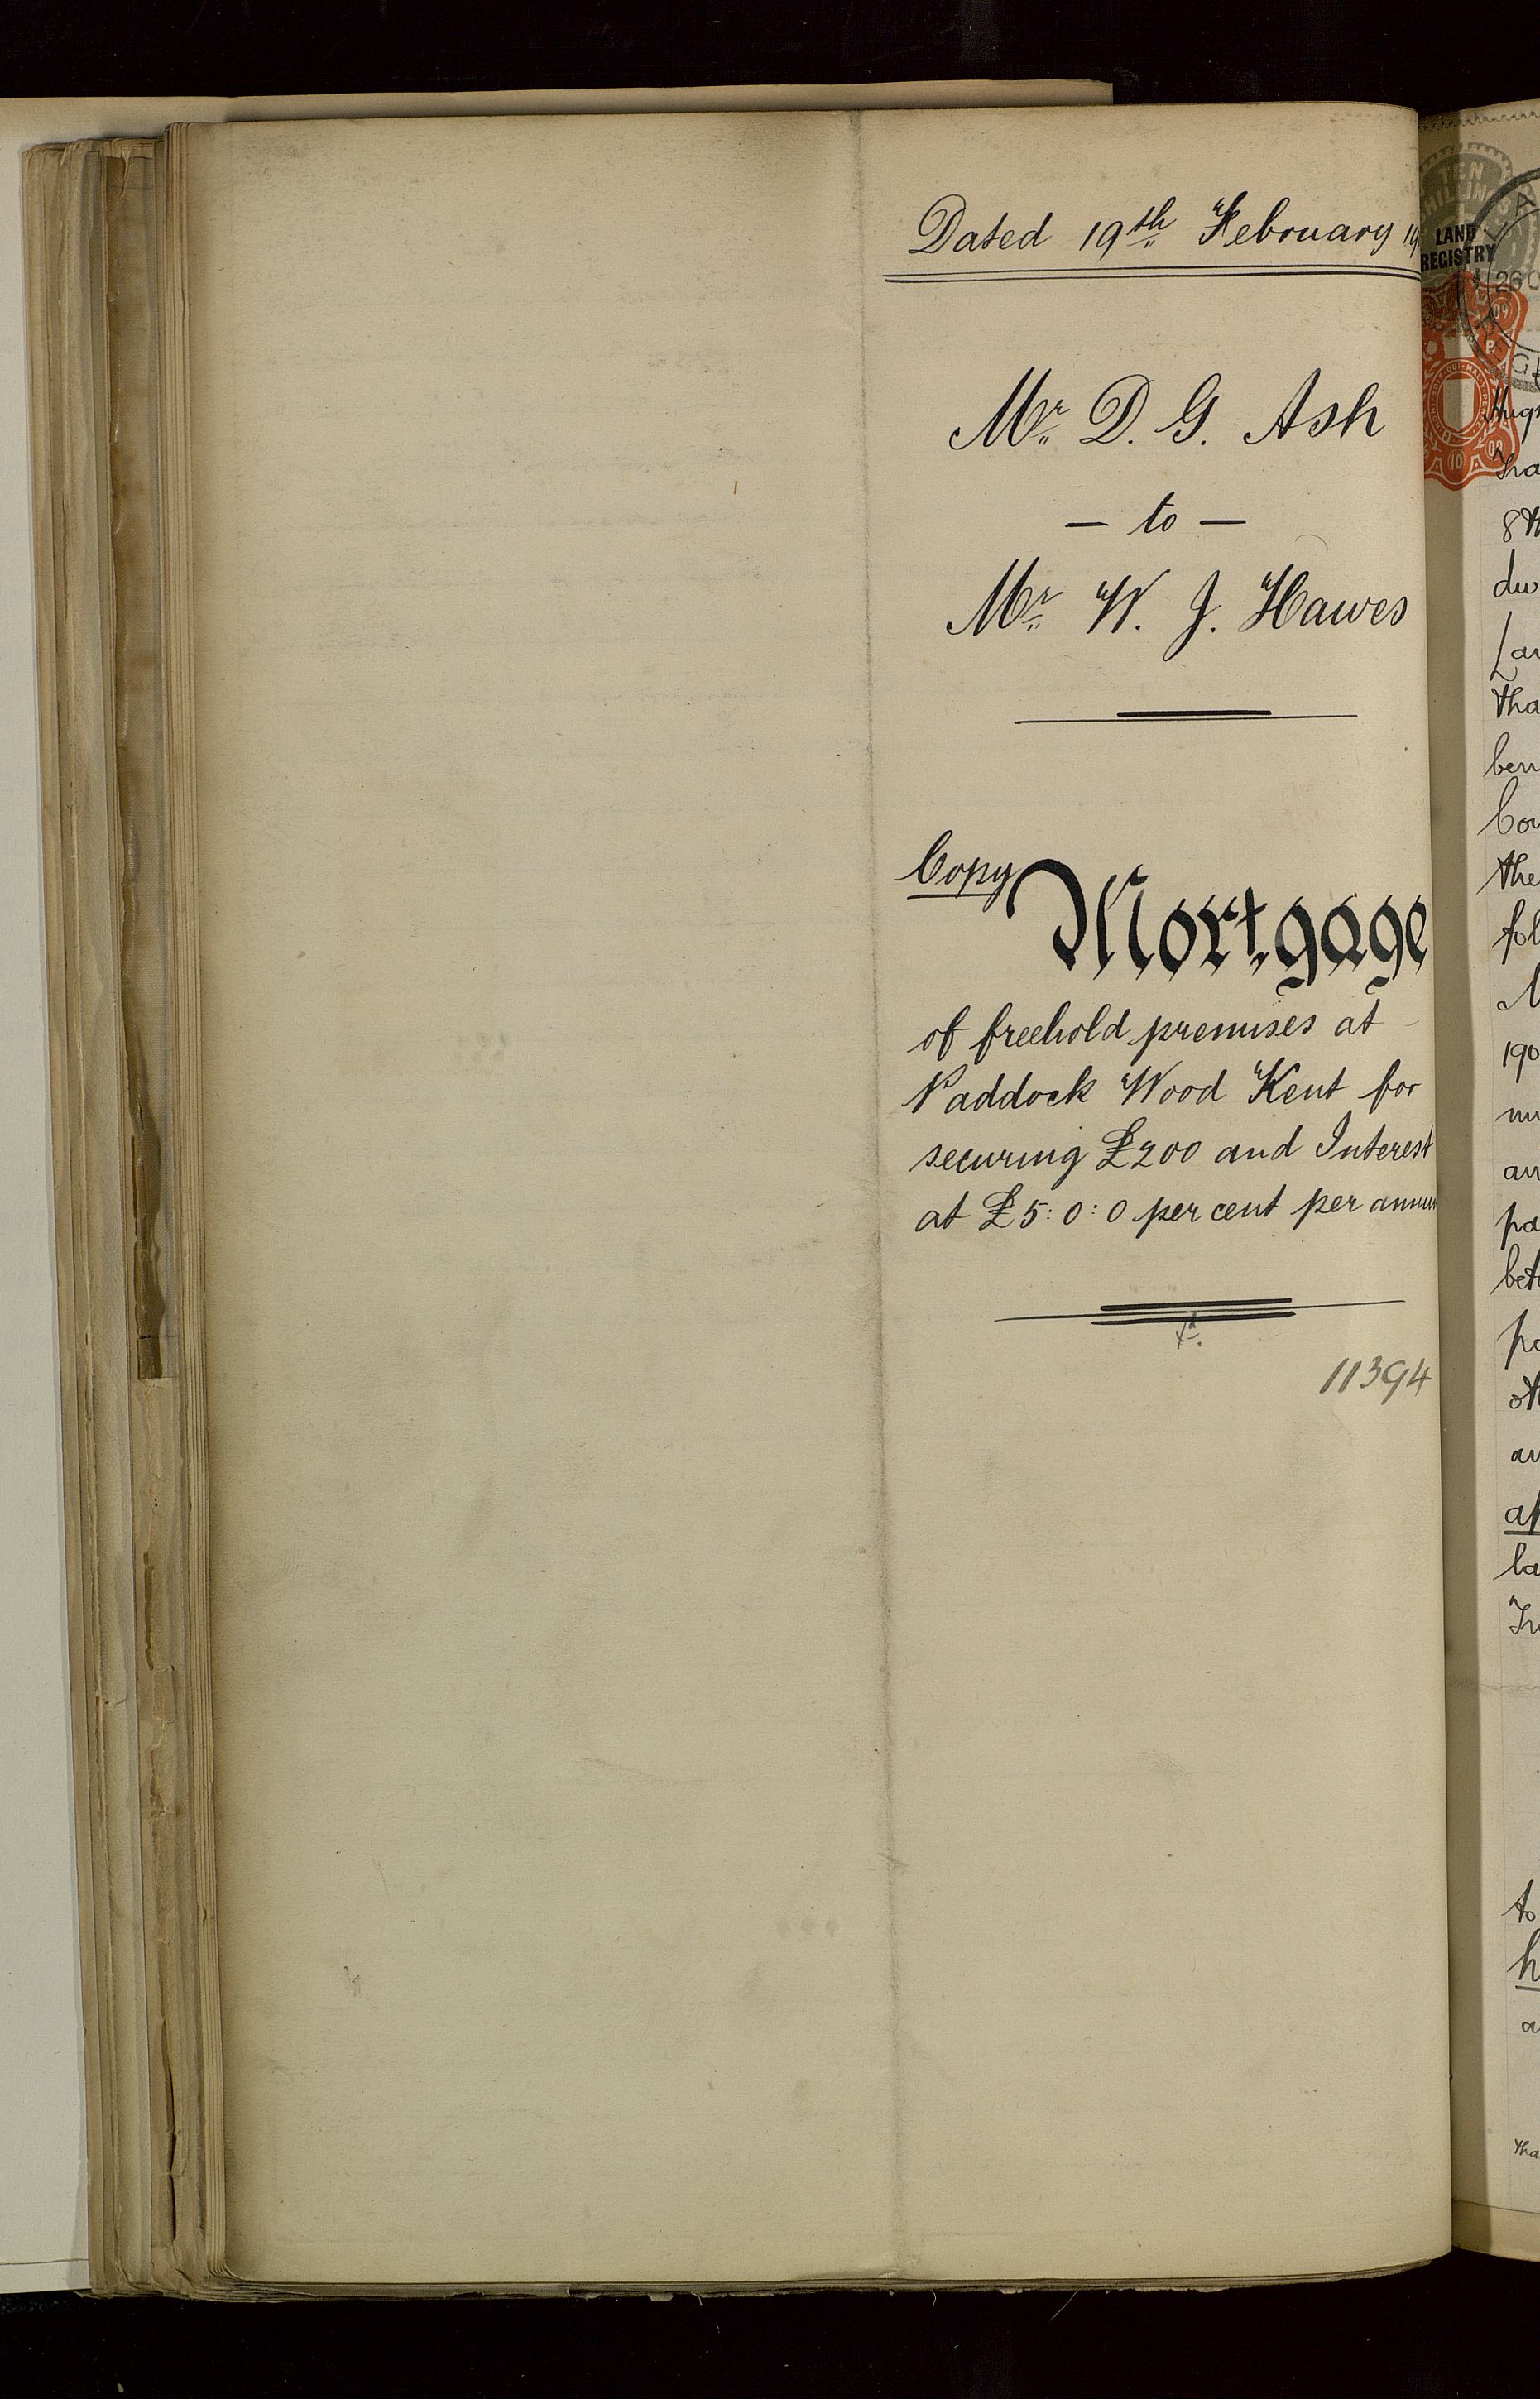 Dated 19th February 19
Mr. D. G. Ash
— to —
Mr. W. J. Hawes
Copy Mortgage
of freehold premises at
Paddock Wood Kent for
securing £200 and Interest
at £5:0:0 per cent per annum
11394
TEN
SHILLINGS
LAND
REGISTRY
26 O
09
10 09
8th
Lan
tha
Cou
the
fol
M
190
an
pa
to
a
tha